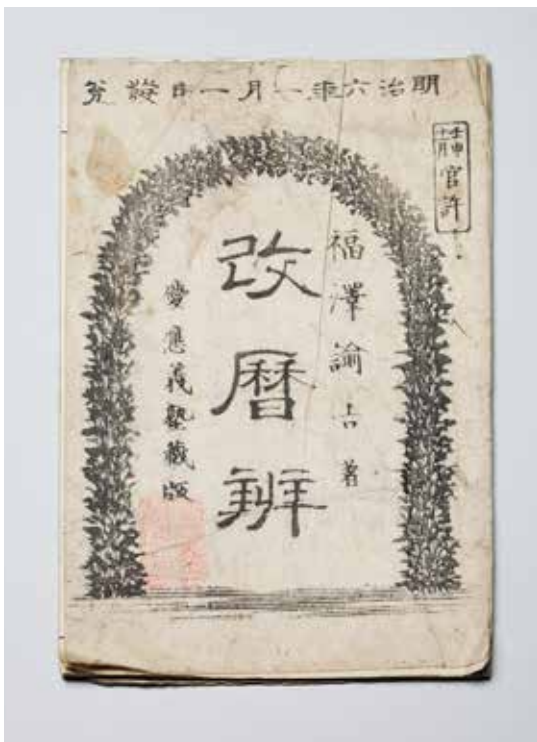 明治六年一月一日發兌
壬申
官許
福澤諭吉著
改暦辨
慶應義塾藏版